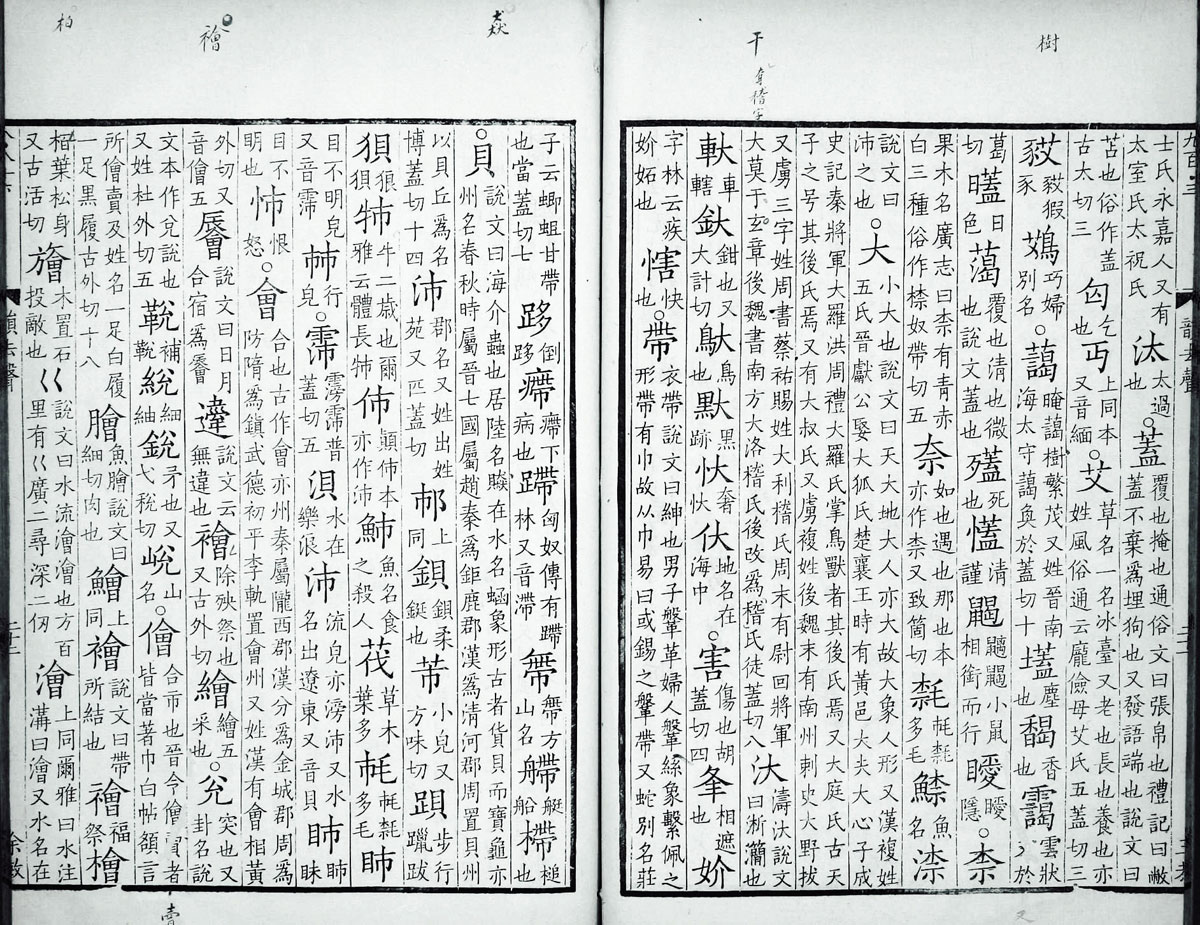 士氏永嘉人又有太室氏太祝氏汰太過也○蓋覆也掩也通俗文曰張帛也禮記曰敝蓋不棄爲埋狗也又發語端也說文曰
苫也俗作盖古太切三匃乞也丐上同本又音緬○艾草名一名冰臺又老也長也養也亦姓風俗通云龐儉母艾氏五蓋切三
豭豕鴱巧婦別名○藹晻藹樹繁茂又姓晉南海太守藹奐於蓋切十壒塵也馤香也靄雲狀又於
葛切日色覆也清也微也說文蓋也死也清謹小鼠相銜而行曖曖隱○柰
果木名廣志曰柰有青赤白三種俗作㮏奴帶切五奈如也遇也那也本亦作柰又致箇切多毛魚名渿
說文曰沛之也○大小大也說文曰天大地大人亦大故大象人形又漢複姓五氏晉獻公娶大狐氏楚襄王時有黃邑大夫大心子成
史記秦將軍大羅洪周禮大羅氏掌鳥獸者其後氏焉又大庭氏古天子之號其後氏焉又有大叔氏又虜複姓後魏末有南州刺史大野拔
又虜三字姓周書蔡祐賜姓大利稽氏周末有尉回將軍大莫于玄章後魏書南方大洛稽氏後改爲稽氏徒蓋切八汏濤汏說文曰淅𤄷也
軑車轄釱鉗也又大計切鳥也黑跡忕奢忕㐲地名在海中○害傷也胡蓋切四夆相遮也妎
字林云疾妎妬也㤩快也○帶衣帶說文曰紳也男子鞶革婦人鞶絲象繫佩之形帶有巾故从巾易曰或錫之鞶帶又蛇別名莊
子云蝍蛆甘帶也當蓋切七跢倒跢㿃㿃下病也蹛匈奴傳有蹛林又音滯山名艜艇船也槌
○貝說文曰海介蟲也居陸名贆在水名蜬象形古者貨貝而寶龜亦州名春秋時屬晉七國屬趙秦爲鉅鹿郡漢爲清河郡周置貝州
以貝丘爲名博蓋切十四沛郡名又姓出姓苑又匹蓋切邶上同鋇鋇柔鋌也芾小皃又方味切䟺步行躐跋
狽狼狽㸬牛二歲也爾雅云體長㸬㤄顛㤄本亦作沛䰽魚名食之殺人茷草木葉多多毛䀟
目不明皃又音霈行皃○霈霶霈普蓋切五浿水在樂浪沛流皃亦滂沛又水名出遼東又音貝䀟䀟眛
目不明也㤄恨怒○會合也古作㑹亦州秦屬隴西郡漢分爲金城郡周爲防隋爲鎮武德初平李軌置會州又姓漢有會相黃
外切又音儈五說文曰日月合宿爲說文云無違也襘除殃祭也又古外切繪繪五采也○兌突也又卦名說
文本作兊說也又姓杜外切五䩭補䩭綐細紬銳矛也又弋稅切山名○儈合市也晉令儈賣者皆當著巾白帖額言
所儈賣及姓名一足白履一足黑履古外切十八膾魚膾說文曰細切肉也鱠上同襘說文曰帶所結也禬福祭檜
柏葉松身又古活切旝木置石投敵也巜說文曰水流澮澮也方百里有巜廣二尋深二仞澮上同爾雅曰水注溝曰澮又水名在